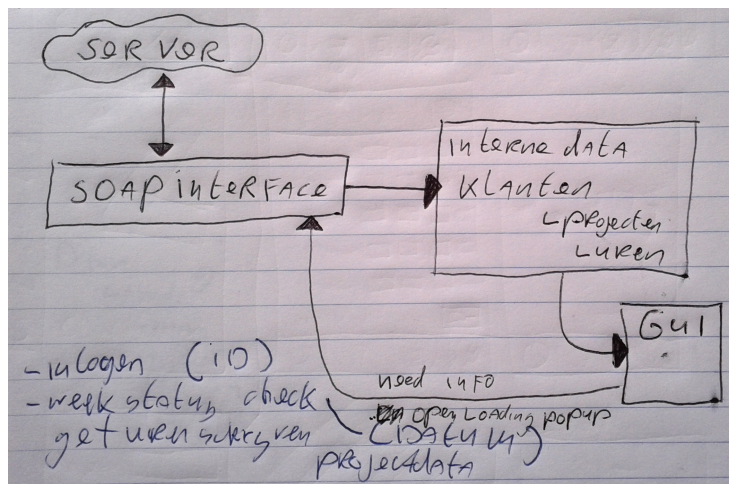 SERVER
SOAP interface
interne data
Klanten
projecten
uren
GUI
need info
open Loading popup
- inlogen (iD)
- week status check
get uren schryven (DATUM)
projectdata